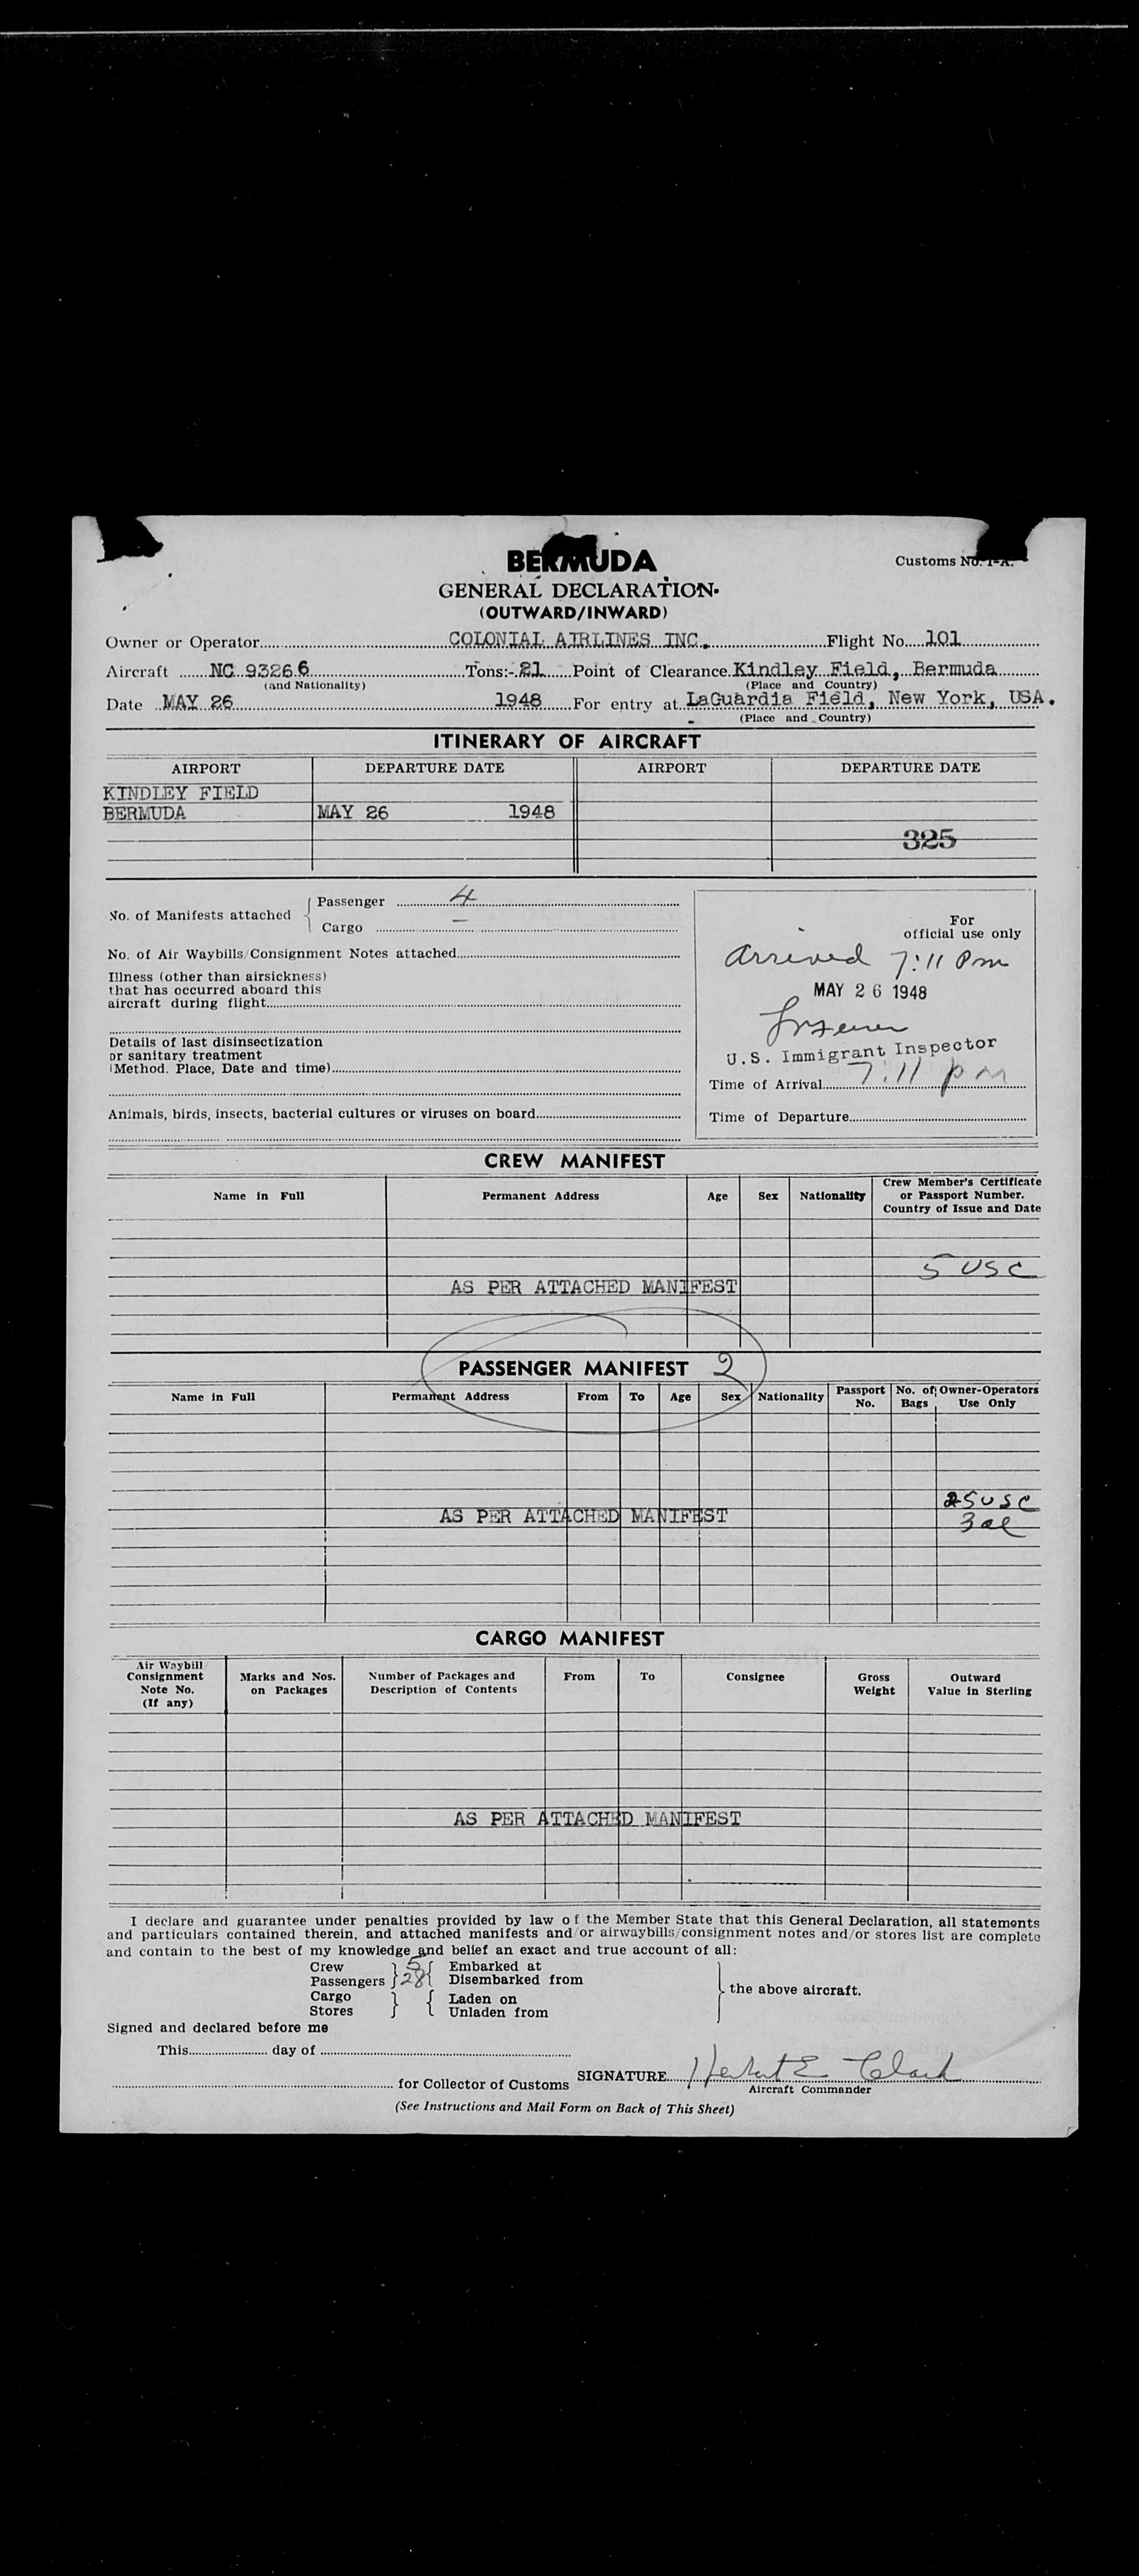 BERMUDA
Customs No. 1-A.
GENERAL DECLARATION
(OUTWARD/INWARD)
Owner or Operator COLONIAL AIRLINES INC. Flight No. 101
Aircraft NC 93266 Tons:- 21 Point of Clearance Kindley Field, Bermuda
(and Nationality) (Place and Country)
Date MAY 26 1948 For entry at LaGuardia Field, New York, USA.
(Place and Country)
ITINERARY OF AIRCRAFT
AIRPORT DEPARTURE DATE AIRPORT DEPARTURE DATE
KINDLEY FIELD
BERMUDA MAY 26 1948
325
No. of Manifests attached { Passenger 4
Cargo —
For
official use only
Arrived 7:11 Pm
MAY 26 1948
U.S. Immigrant Inspector
Time of Arrival 7:11 pm
Time of Departure
No. of Air Waybills/Consignment Notes attached
Illness (other than airsickness)
that has occurred aboard this
aircraft during flight
Details of last disinsectization
or sanitary treatment
(Method. Place, Date and time)
Animals, birds, insects, bacterial cultures or viruses on board
CREW MANIFEST
Name in Full Permanent Address Age Sex Nationality Crew Member's Certificate
or Passport Number.
Country of Issue and Date
5 USC
AS PER ATTACHED MANIFEST
PASSENGER MANIFEST 2
Name in Full Permanent Address From To Age Sex Nationality Passport No. No. of Bags Owner-Operators Use Only
25 USC
AS PER ATTACHED MANIFEST
3 al
CARGO MANIFEST
Air Waybill Consignment Note No. (If any) Marks and Nos. on Packages Number of Packages and Description of Contents From To Consignee Gross Weight Outward Value in Sterling
AS PER ATTACHED MANIFEST
I declare and guarantee under penalties provided by law of the Member State that this General Declaration, all statements
and particulars contained therein, and attached manifests and/or airwaybills/consignment notes and/or stores list are complete
and contain to the best of my knowledge and belief an exact and true account of all:
Crew } 5 { Embarked at
Passengers } 28 { Disembarked from
} the above aircraft.
Cargo } { Laden on
Stores } { Unladen from
Signed and declared before me
This day of
for Collector of Customs SIGNATURE Herbert E Clark
Aircraft Commander
(See Instructions and Mail Form on Back of This Sheet)